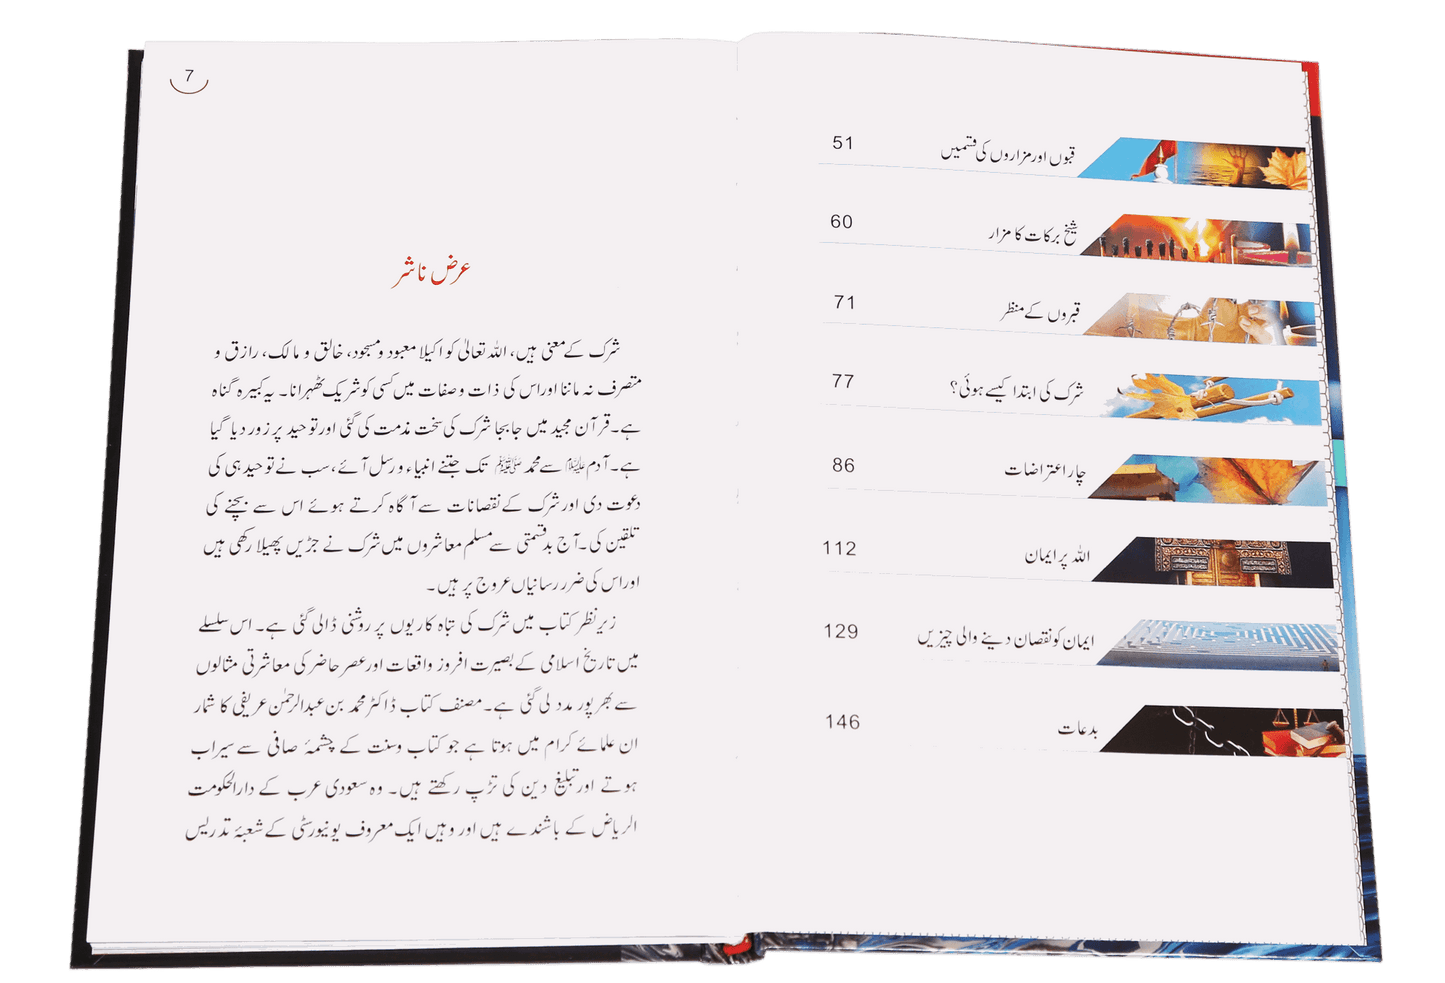 قبوں اور مزاروں کی قسمیں 51
شیخ برکات کا مزار 60
قبروں کے منظر 71
شرک کی ابتدا کیسے ہوئی؟ 77
چار اعتراضات 86
اللہ پر ایمان 112
ایمان کو نقصان دینے والی چیزیں 129
بدعات 146
7
عرض ناشر
شرک کے معنی ہیں، اللہ تعالیٰ کو اکیلا معبود و مسجود، خالق و مالک، رازق و
متصرف نہ ماننا اور اس کی ذات و صفات میں کسی کو شریک ٹھہرانا۔ یہ کبیرہ گناہ
ہے۔ قرآن مجید میں جابجا شرک کی سخت مذمت کی گئی اور توحید پر زور دیا گیا
ہے۔ آدم علیہ السلام سے محمد ﷺ تک جتنے انبیاء و رسل آئے، سب نے توحید ہی کی
دعوت دی اور شرک کے نقصانات سے آگاہ کرتے ہوئے اس سے بچنے کی
تلقین کی۔ آج بدقسمتی سے مسلم معاشروں میں شرک نے جڑیں پھیلا رکھی ہیں
اور اس کی ضرر رسانیاں عروج پر ہیں۔
زیر نظر کتاب میں شرک کی تباہ کاریوں پر روشنی ڈالی گئی ہے۔ اس سلسلے
میں تاریخ اسلامی کے بصیرت افروز واقعات اور عصر حاضر کی معاشرتی مثالوں
سے بھرپور مدد لی گئی ہے۔ مصنف کتاب ڈاکٹر محمد بن عبدالرحمٰن عریفی کا شمار
ان علمائے کرام میں ہوتا ہے جو کتاب و سنت کے چشمۂ صافی سے سیراب
ہوتے اور تبلیغ دین کی تڑپ رکھتے ہیں۔ وہ سعودی عرب کے دارالحکومت
الریاض کے باشندے ہیں اور وہیں ایک معروف یونیورسٹی کے شعبۂ تدریس